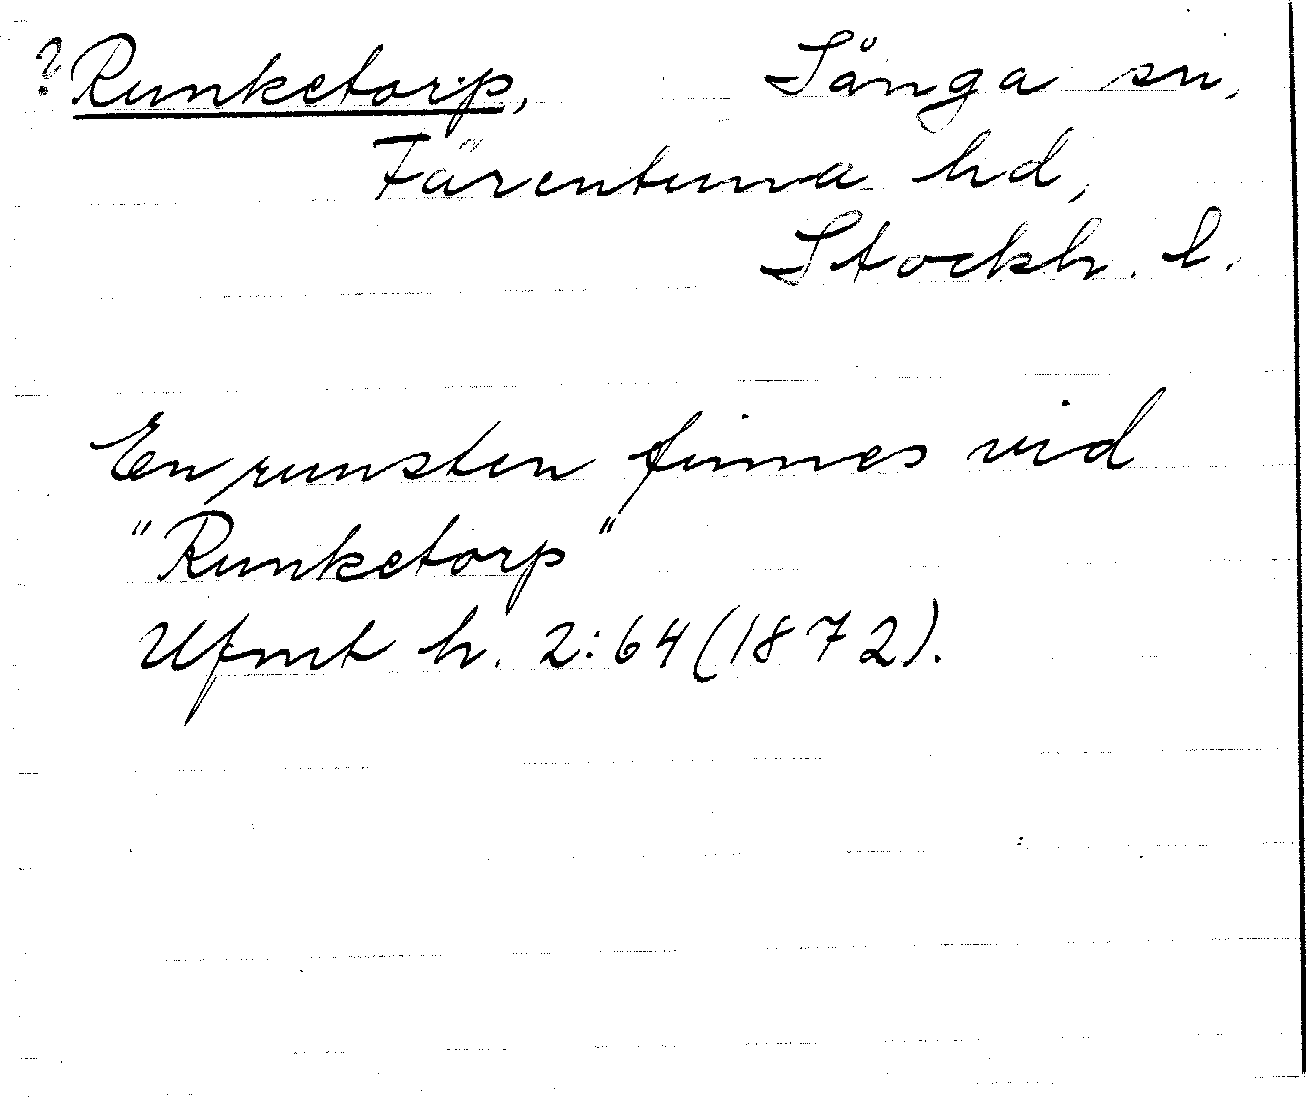 ? Runketorp, Sånga sn,
Färentuna hd,
Stockh. l.
En runsten finnes vid
"Runketorp"
Ufmt h. 2:64 (1872).